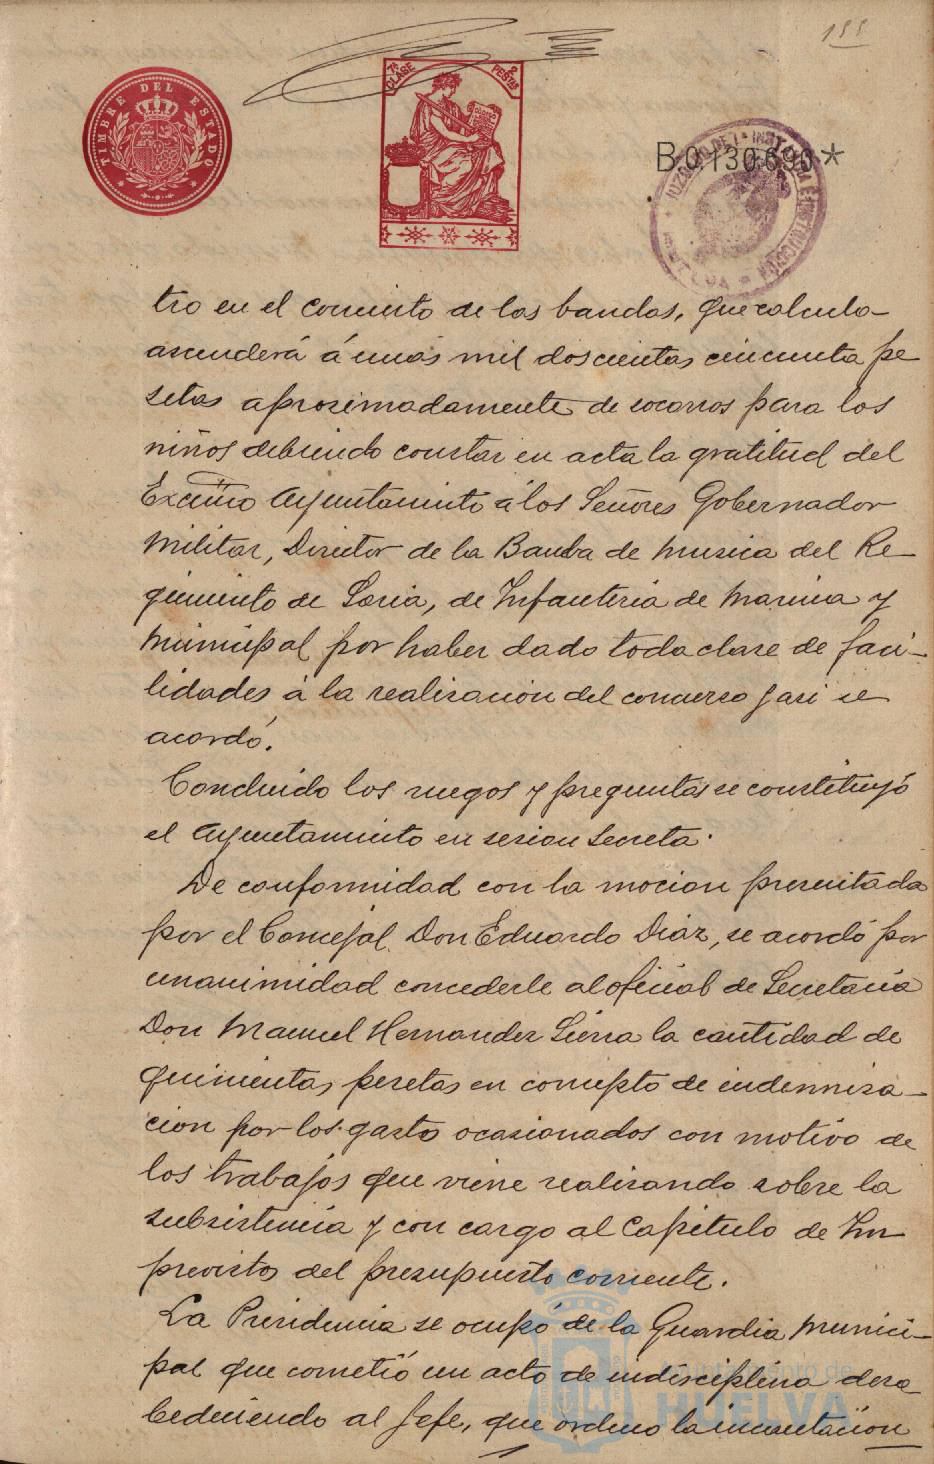 155
TIMBRE DEL ESTADO
7ª CLASE 2 PESETAS
B.0.130.690*
JUZGADO DE 1ª INSTANCIA E INSTRUCCIÓN
HUELVA
tro en el concierto de las bandas, que calcula
ascenderá á unas mil doscientas cincuenta pe
setas aprosimadamente de socorros para los
niños debiendo constar en acta la gratitud del
Excmo Ayuntamiento á los Señores Gobernador
Militar, Director de la Banda de musica del Re-
gimiento de Soria, de Infanteria de Marina y
Municipal por haber dado toda clase de faci-
lidades á la realisacion del concierto y asi se
acordó.
Concluido los ruegos y preguntas se constituyó
el Ayuntamiento en sesion Secreta.
De conformidad con la mocion presentada
por el Concejal Don Eduardo Diaz, se acordó por
unanimidad concederle al oficial de Secretaria
Don Manuel Hernandez Sierra la cantidad de
quinientas pesetas en concepto de indennisa-
cion por los gasto ocasionados con motivo de
los trabajos que viene realisando sobre la
subsistencia y con cargo al Capitulo de Im
previstos del presupuesto corriente.
La Presidencia se ocupó de la Guardia Munici-
pal que cometió un acto de indisciplina deso
bediciendo al Jefe, que ordeno la incautacion
Ayuntamiento de
HUELVA